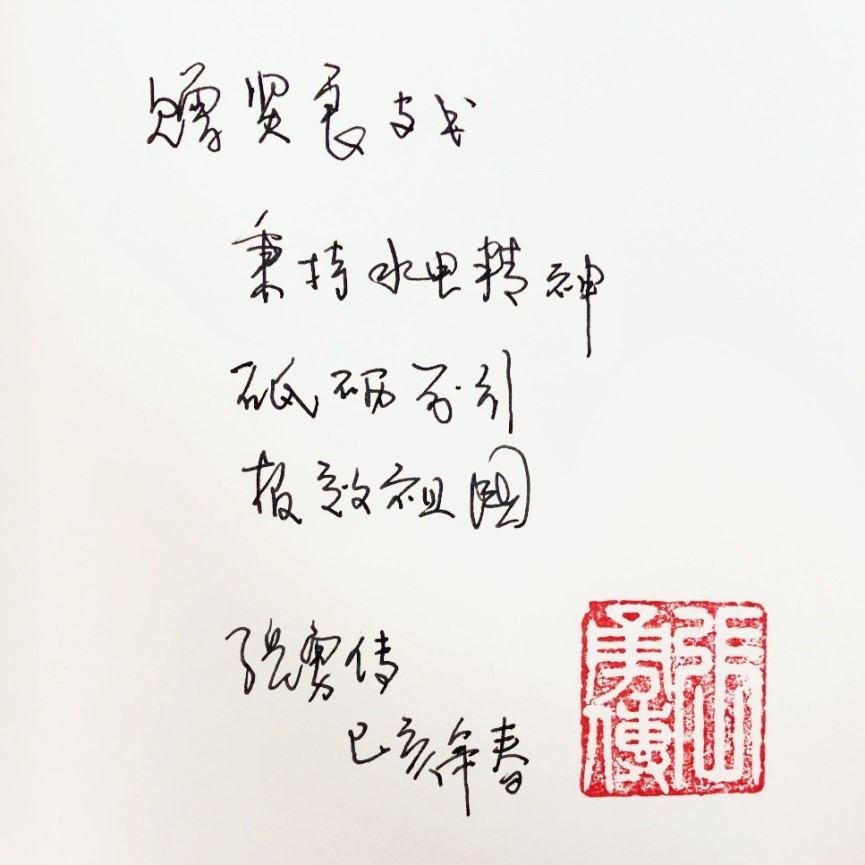 赠贤良
秉持水电精神
砥砺前行
报效祖國
張勇传
己亥年春
張勇傳